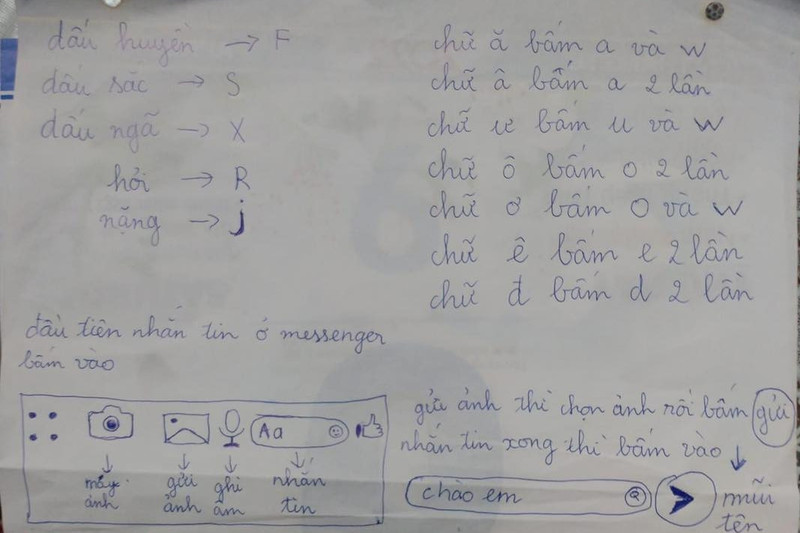 dấu huyền → F
dấu sắc → S
dấu ngã → X
hỏi → R
nặng → j
chữ ă bấm a và w
chữ â bấm a 2 lần
chữ ư bấm u và w
chữ ô bấm o 2 lần
chữ ơ bấm o và w
chữ ê bấm e 2 lần
chữ đ bấm d 2 lần
đầu tiên nhắn tin ở messenger
bấm vào
Aa
máy ảnh
gửi ảnh
ghi âm
nhắn tin
gửi ảnh thì chọn ảnh rồi bấm gửi
nhắn tin xong thì bấm vào ↓
chào em
mũi tên